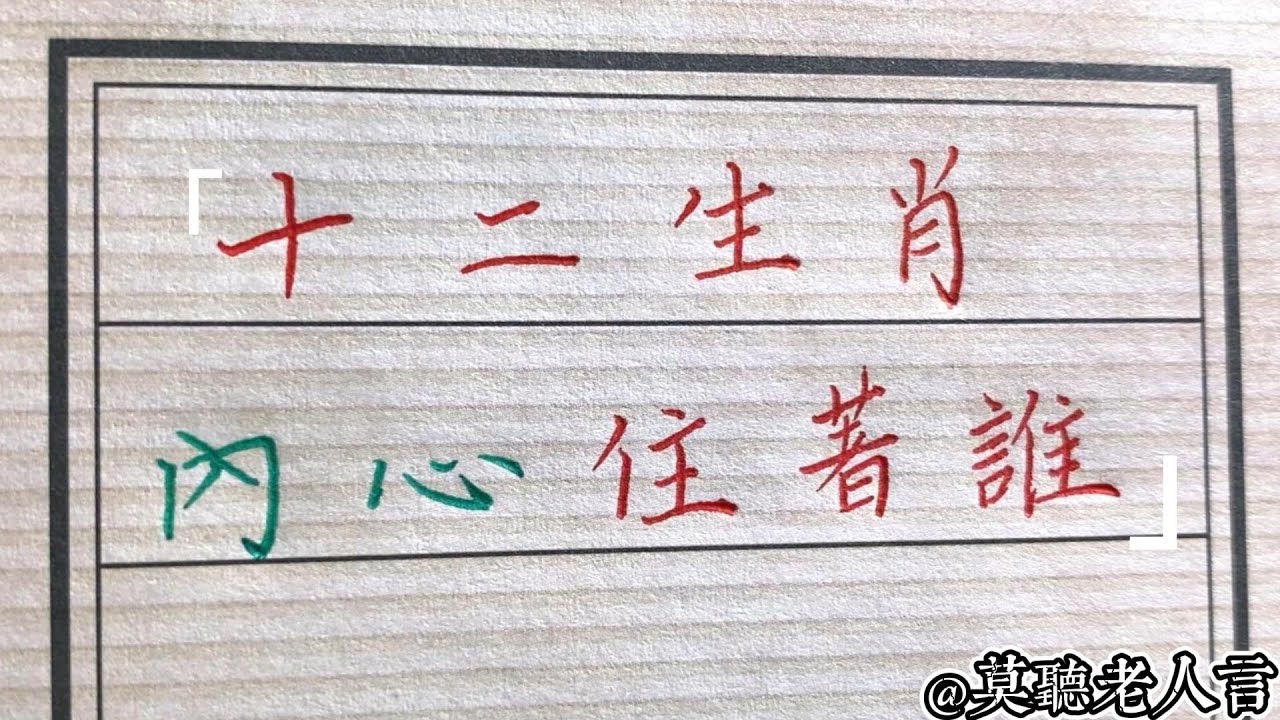 「十二生肖
內心住著誰」
@莫聽老人言